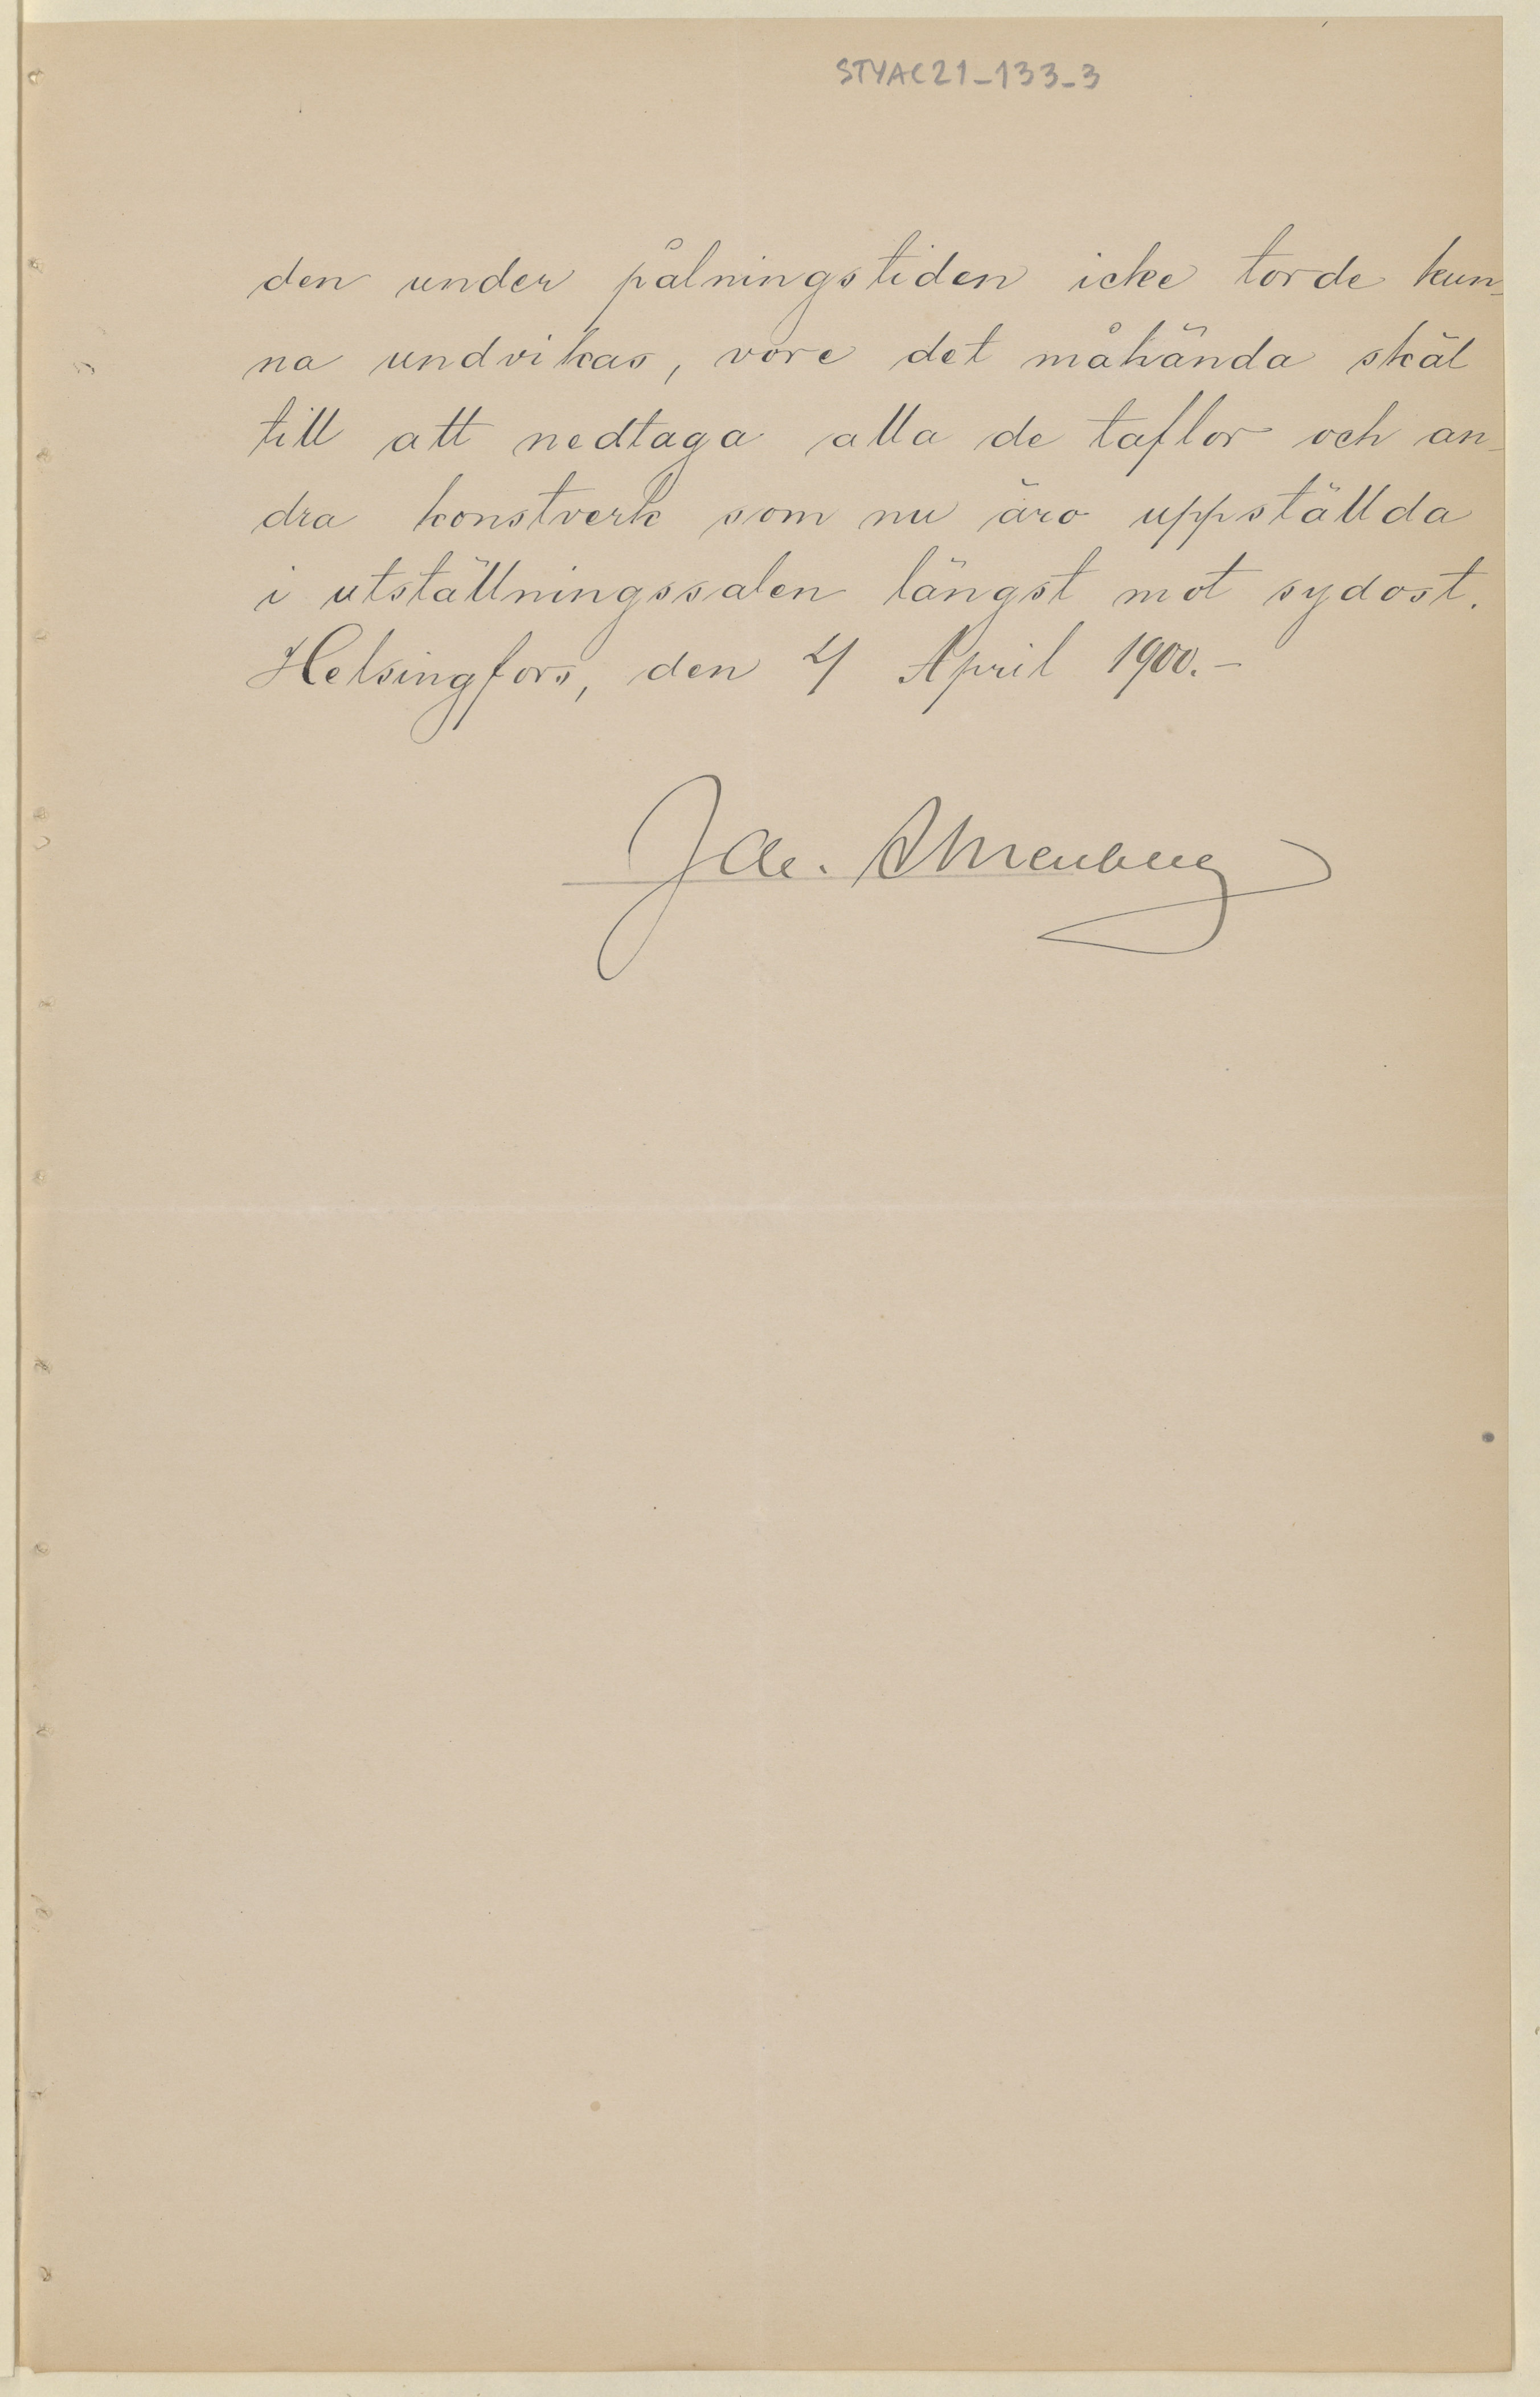 STYAC21_133_3
den under pålningstiden icke torde kun-
na undvikas, vore det måhända skäl
till att nedtaga alla de taflor och an-
dra konstverk som nu äro uppställda
i utställningssalen längst mot sydost.
Helsingfors, den 4 April 1900.-
Jac. Ahrenberg